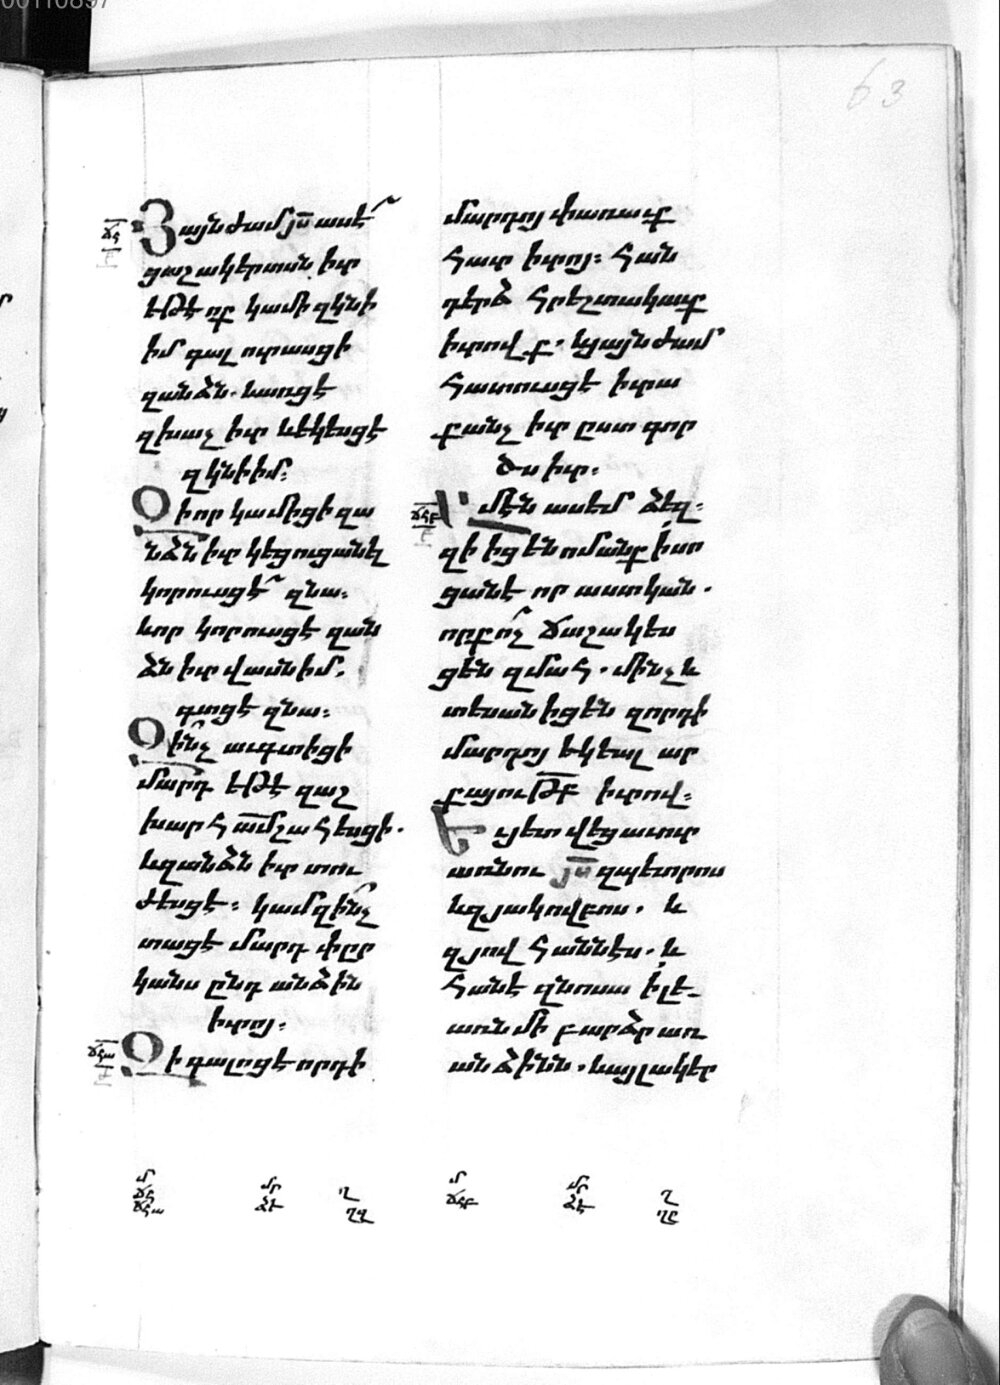 00110897
63
ՃՀ
Յայնժամ յս ասէ
ցաշակերտսն իւր
եթէ ոք կամի զկնի
իմ գալ ուրասցի
զանձն. և առցէ
զխաչ իւր և եկեսցէ
զկնի իմ։
Զի որ կամիցի զա
նձն իւր կեցուցանել
կորուսցէ զնա։
և որ կորուսցէ զան
ձն իւր վասն իմ.
գտցէ զնա։
Զինչ աւգտիցի
մարդ եթէ զաշ
խարհ ամ շահեսցի.
և զանձն իւր տու
ժեսցէ։ կամ զինչ
տացէ մարդ փըր
կանս ընդ անձին
իւրոյ։
ՃՀԱ
Զի գալոց է որդի
մարդոյ փառաւք
հաւր իւրոյ։ հան
դերձ հրեշտակաւք
իւրովք. և յայնժամ
հատուսցէ իւրա
քանչ իւր ըստ գոր
ծս իւր։
ՃՀԲ
Ամէն ասեմ ձեզ։
զի իցեն ոմանք ի սո
ցանէ որ աստ կան.
որք ոչ ճաշակես
ցեն զմահ. մինչև
տեսանիցեն զորդի
մարդոյ եկեալ ար
քայութբ իւրով։
Եւ յետ վեց աւուր
առնու յս զպետրոս
և զյակովբոս. և
զյովհաննէս. և
հանէ զնոսա ի լե
առն մի բարձր առ
անձինն. և այլակեր